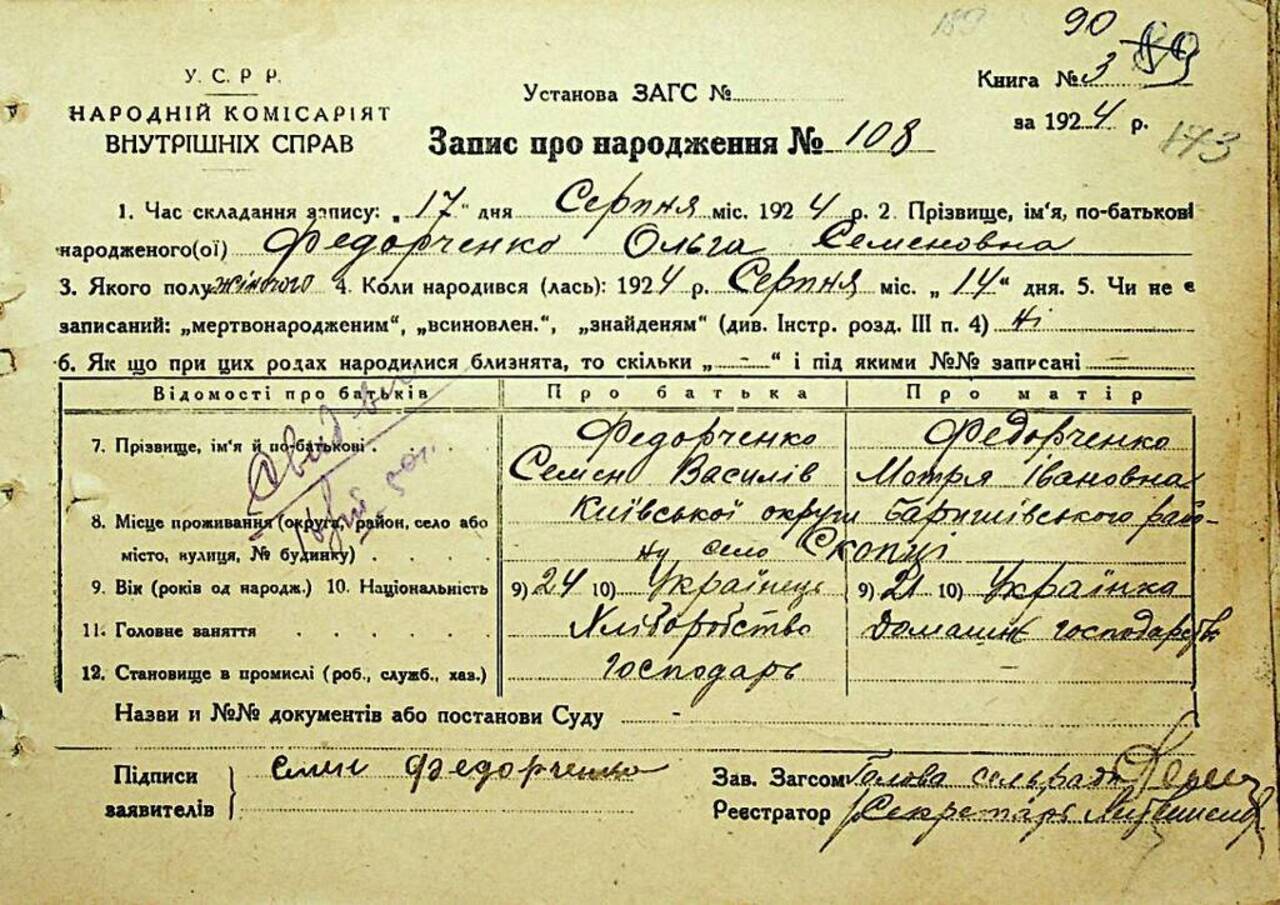 90
У. С. Р. Р.
НАРОДНІЙ КОМІСАРІЯТ
ВНУТРІШНІХ СПРАВ
Установа ЗАГС №
Книга № 3 89
за 1924 р.
173
Запис про народження № 108
1. Час складання запису: „17" дня Серпня міс. 1924 р. 2. Прізвище, ім'я, по-батькові
народженого(ої) Федорченко Ольга Семеновна
3. Якого полу жіночого 4. Коли народився (лась): 1924 р. Серпня міс. „14" дня. 5. Чи не є
записаний: „мертвонародженим", „всиновлен.", „знайденям" (див. Інстр. розд. III п. 4) ні
6. Як що при цих родах народилися близнята, то скільки „ — " і під якими №№ записані —
Відомості про батьків Про батька Про матір
7. Прізвище, ім'я й по-батькові . Федорченко Федорченко
Семен Василів Мотря Івановна
8. Місце проживання (округа, район, село або Київської округи Баришівського райо-
місто, вулиця, № будинку) . . . ну село Скопці
9. Вік (років од народж.) 10. Національність 9) 24 10) Українець 9) 21 10) Українка
11. Головне заняття . . . . . . Хліборобство Домашнє господарство
12. Становище в промислі (роб., служб., хаз.) господарь —
Назви и №№ документів або постанови Суду -
Підписи
заявителів
Семен Федорченко
Зав. Загсом Голова сельради
Реєстратор Секретарь